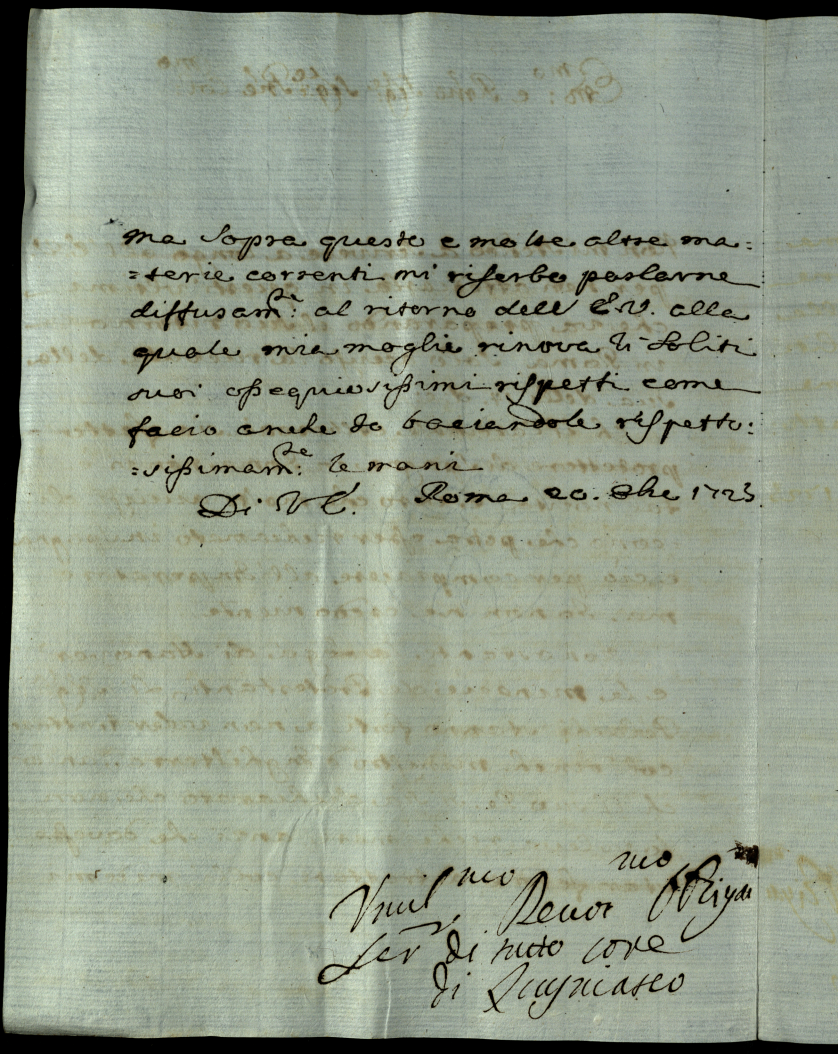 ma sopra questo e molte altre ma:
=terie correnti mi riserbo parlarne
diffusam.te al ritorno dell' E.V. alla
quale mia moglie rinova li soliti
suoi ossequiosissimi rispetti come
facio anche io baciandole rispetto:
=sissimam.te le mani
Di V.E. Roma 20. Xbre 1723
Umil.mo Devot.mo Obligat.
Ser.r di tutto core
di